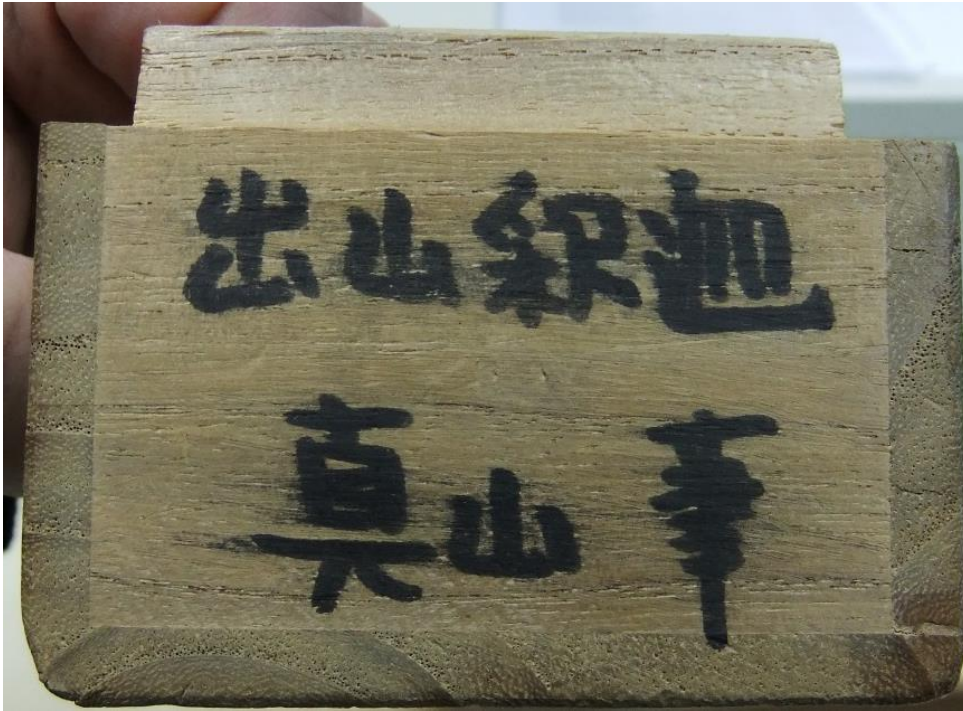 出山釈迦
真山幸